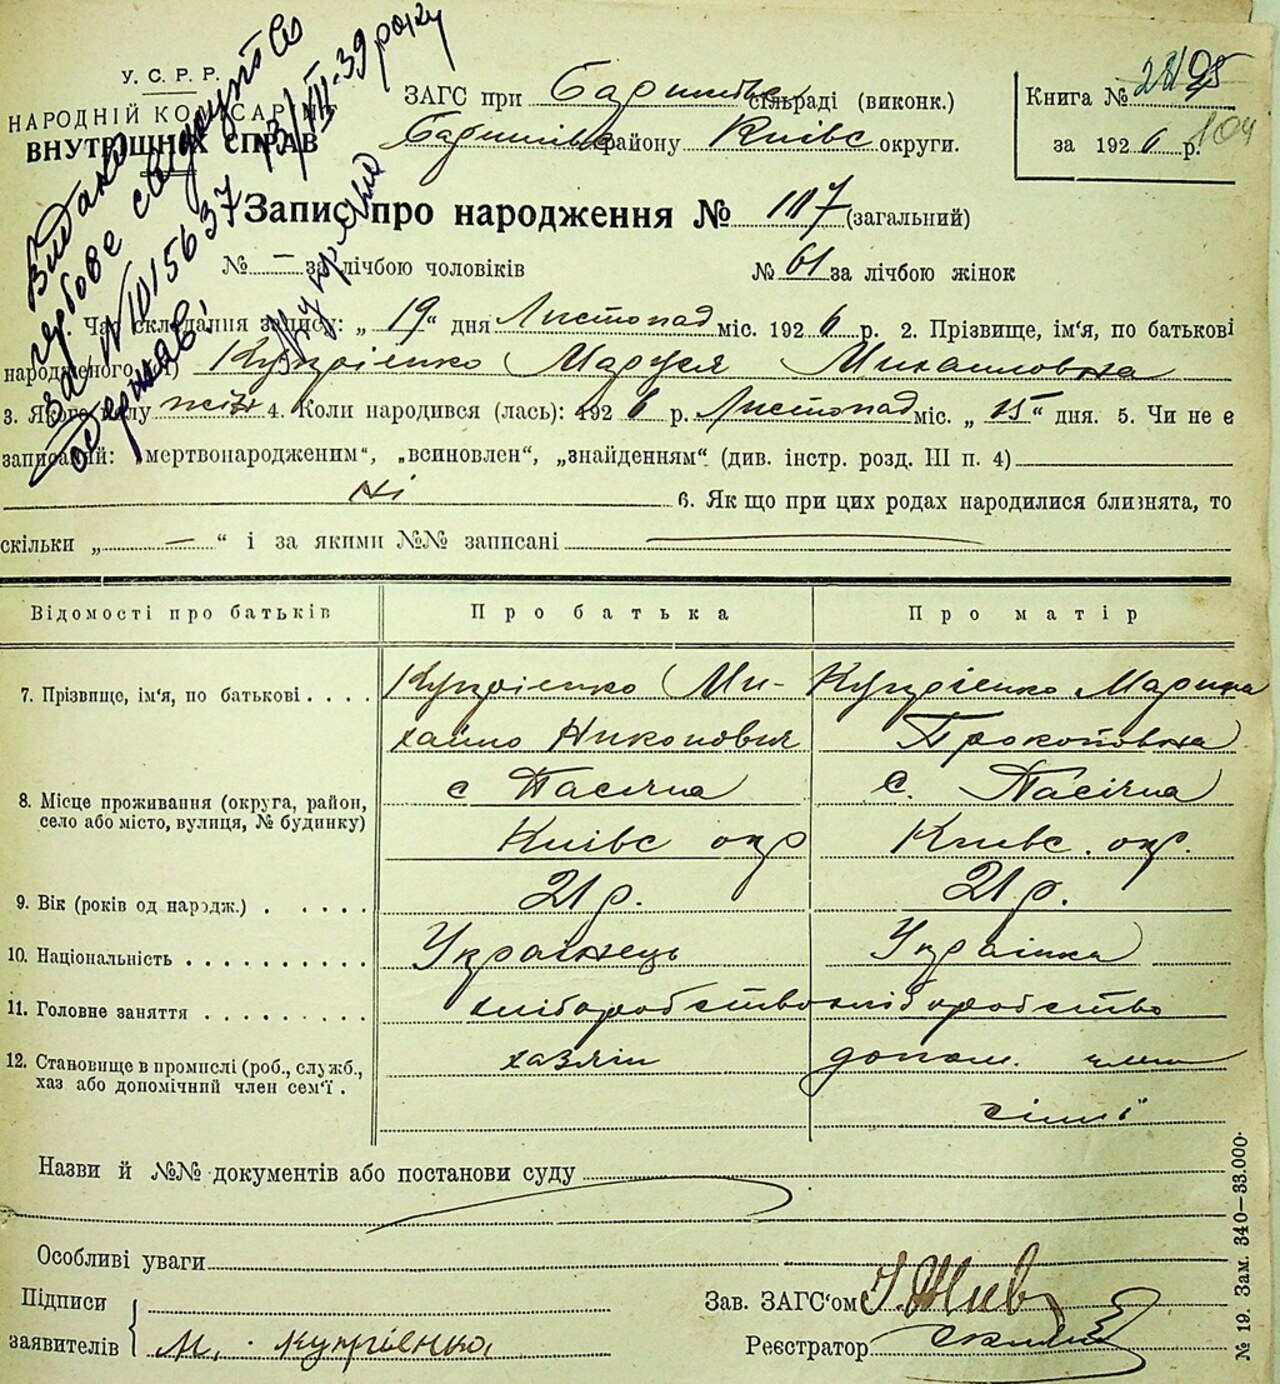 У. С. Р. Р.
НАРОДНІЙ КОМІСАРІЯТ
ВНУТРІШНІХ СПРАВ
Видано
гербове свідоцтво
за №1015637 13/VII-39 року
одержав:
ЗАГС при сільраді (виконк.)
району Київс округи.
Книга №
за 1926 р.
104
Запис про народження № 117 (загальний)
№ — за лічбою чоловіків
№ 61 за лічбою жінок
Час складання запису: „ 19 “ дня Листопад міс. 1926 р. 2. Прізвище, ім'я, по батькові
народженого Маруся Михайловна
3. Якого полу жін 4. Коли народився (лась): 1926 р. Листопад міс. „ 15 “ дня. 5. Чи не є
записаний: „мертвонародженим“, „всиновлен“, „знайденням“ (див. інстр. розд. III п. 4)
Ні 6. Як що при цих родах народилися близнята, то
скільки „ — “ і за якими №№ записані
Відомості про батьків Про батька Про матір
7. Прізвище, ім'я, по батькові . . . . Ми- Марина
хайло Никонович Прокоповна
8. Місце проживання (округа, район, с Пасічна С. Пасічна
село або місто, вулиця, № будинку)
Київс окр Киевс. окр.
9. Вік (років од народж.) . . . . . 21 р. 21 р.
10. Національність . . . . . . . . . . Українець Українка
11. Головне заняття . . . . . . . . . хліборобство хліборобство
12. Становище в промислі (роб., служб., хазяін допом. член
хаз або допомічний член сем'ї .
сімї
Назви й №№ документів або постанови суду
Особливі уваги
Підписи
заявителів М.
Зав. ЗАГС'ом
Реєстратор
№ 19. Зам. 340—33.000.